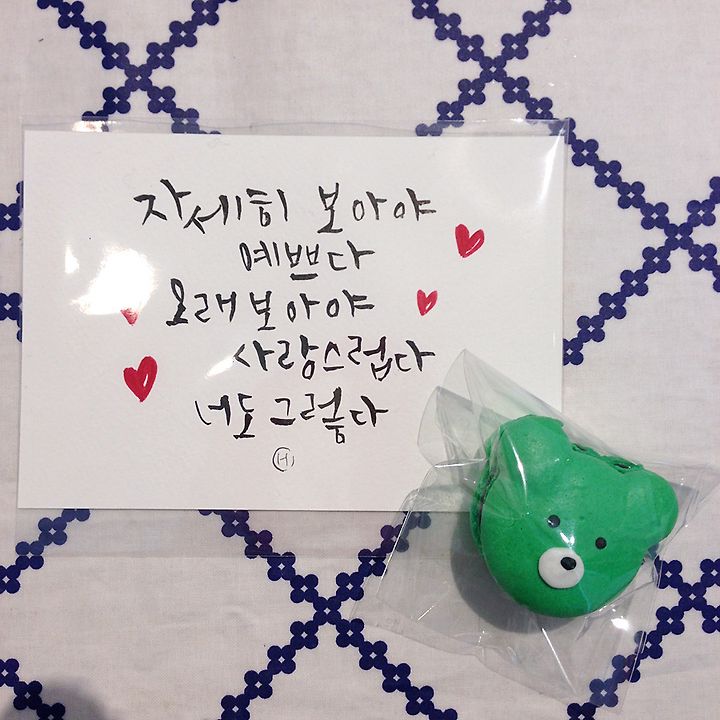 자세히 보아야
예쁘다
오래 보아야
사랑스럽다
너도 그렇다
H